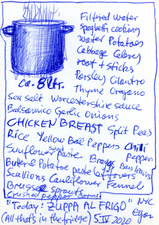 Filtered water
Spaghetti cooking
water Potatoes
Cabbage Celery
root & sticks
Parsley Cilantro
Ca. 8 Ltr.
Thyme Oregano
Sea salt Worcestershire Sauce
Balsamico Garlic Onions
CHICKEN BREAST Split Peas
Rice Yellow Bell Peppers Chili
Sunflower paste Pepper
Butter & Potatoe paste
Scallions Cauliflower Fennel
Brussel Sprouts
"Today: ZUPPA AL FRIGO" NYC
(All thats in the fridge) 5 IV 2020